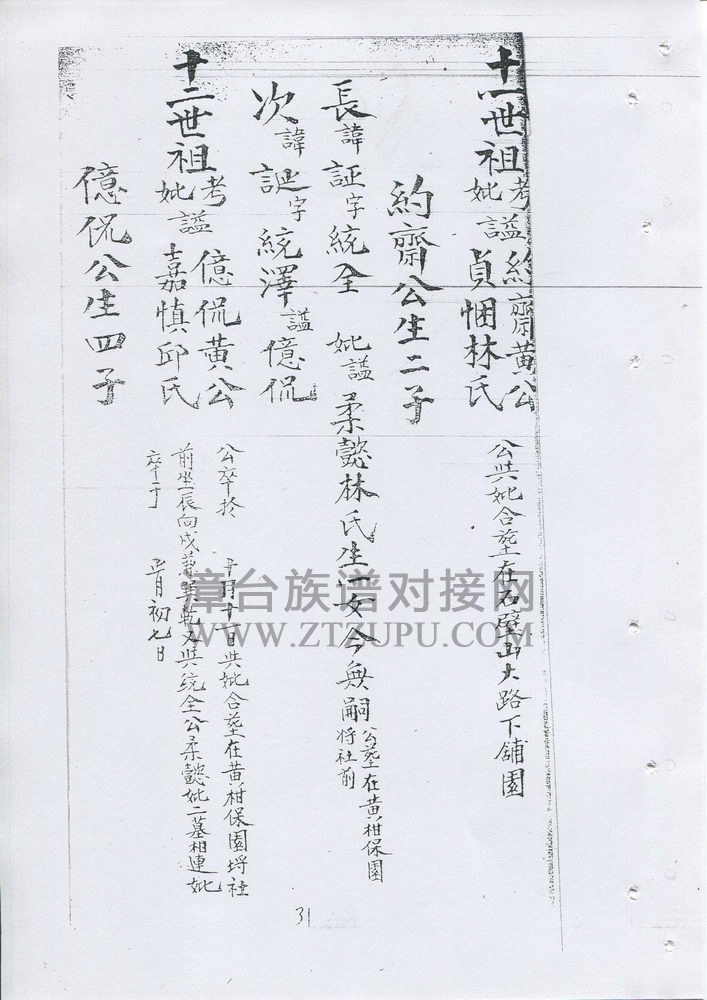 十一世祖考約齋黃公
妣謚貞悃林氏
公與妣合葬在石壁山大路下舖園
約齋公生二子
長諱証字統全 妣謚柔懿林氏生一女今無嗣
公葬在黃柑保園
埓社前
次諱誕字統澤謚億侃
十二世祖考億侃黃公
妣謚嘉慎邱氏
公卒於 十月十一日與妣合葬在黃柑保園埓社
前坐辰向戌兼巽乾又與統全公柔懿妣二墓相連妣
卒于 正月初七日
億侃公生四子
漳台族谱对接网
WWW.ZTZUPU.COM
31